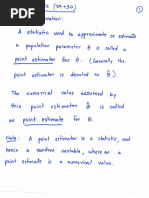 (29 + 30)
①
mation:
A statistic used to approximate or estimate
a population parameter θ is called a
point estimator for θ. (Generally the
point estimator is denoted by θ̂).
The numerical value assumed by
this point estimator θ̂ is called
as point estimate for θ.
Note: A point estimator is a statistic, and
hence a random variable, where as a
point estimate is a numerical value.